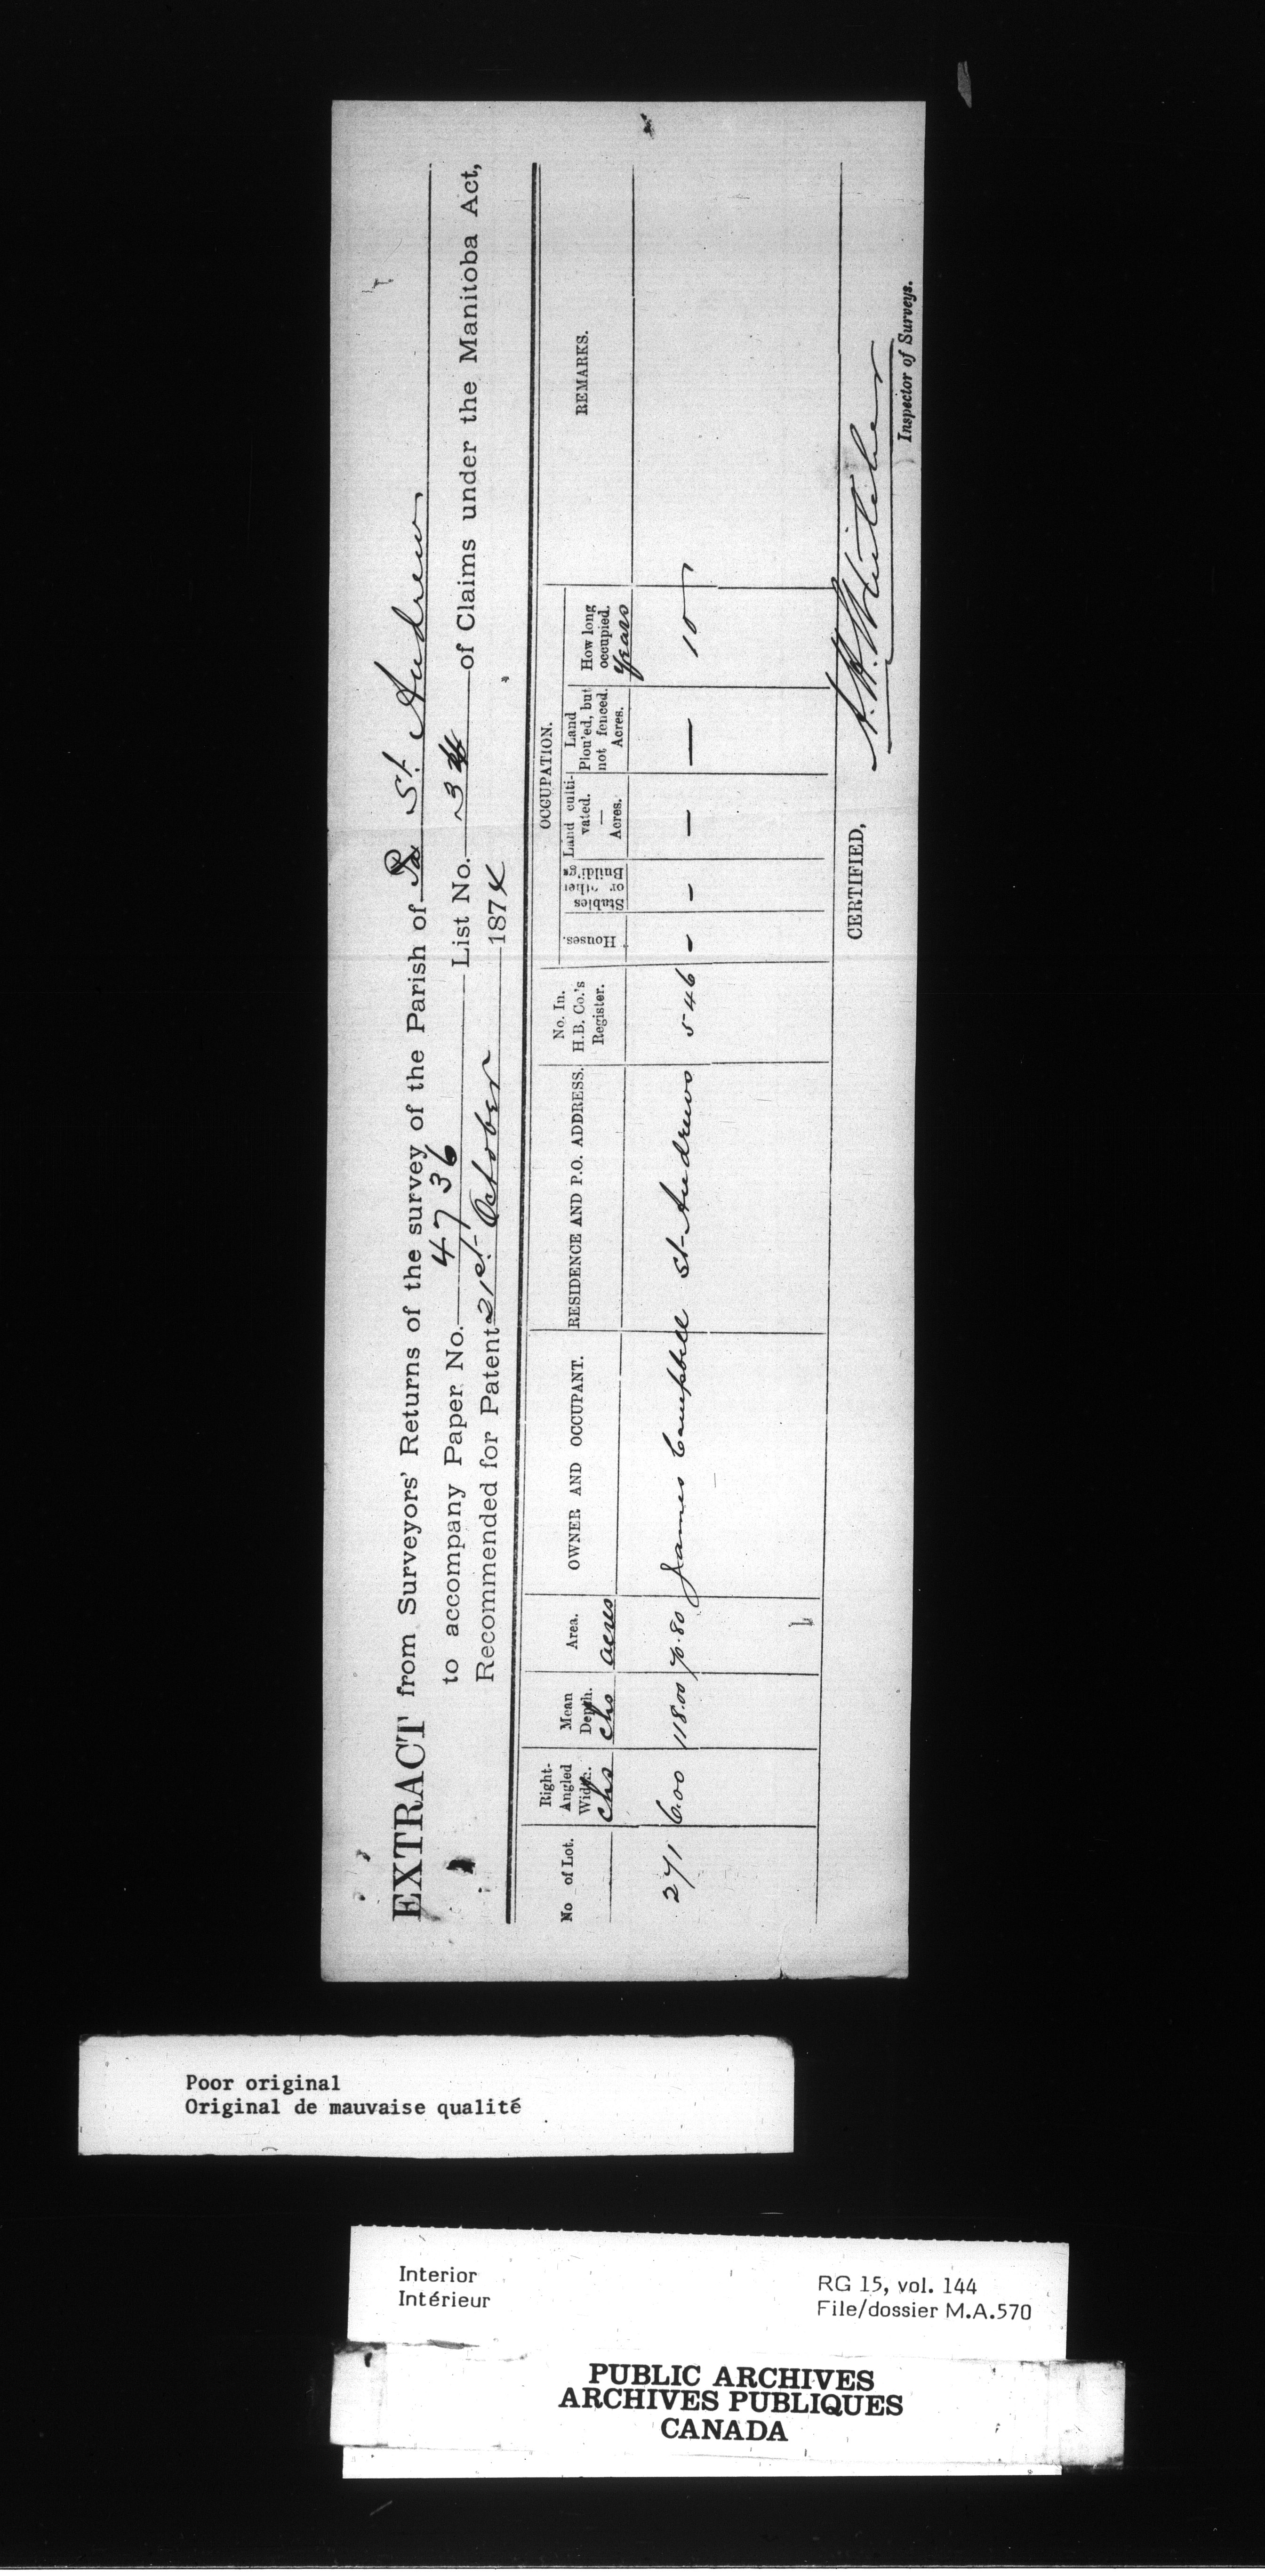 EXTRACT from Surveyors' Returns of the survey of the Parish of St. Andrews
to accompany Paper No. 4736 List No. 3 of Claims under the Manitoba Act,
Recommended for Patent 21st October 1874
No of Lot. Right-Angled Width. Mean Depth. Area. OWNER AND OCCUPANT. RESIDENCE AND P.O. ADDRESS. No. In. H.B. Co.'s Register. OCCUPATION. REMARKS.
Houses. Stables or other Buildi'gs Land culti-vated. — Acres. Land Plou'ed, but not fenced. Acres. How long occupied.
chs chs acres years
271 6.00 118.00 70.80 James Campbell St Andrews 546 – – – — 10
CERTIFIED,
Inspector of Surveys.
Poor original
Original de mauvaise qualité
Interior
Intérieur
RG 15, vol. 144
File/dossier M.A.570
PUBLIC ARCHIVES
ARCHIVES PUBLIQUES
CANADA